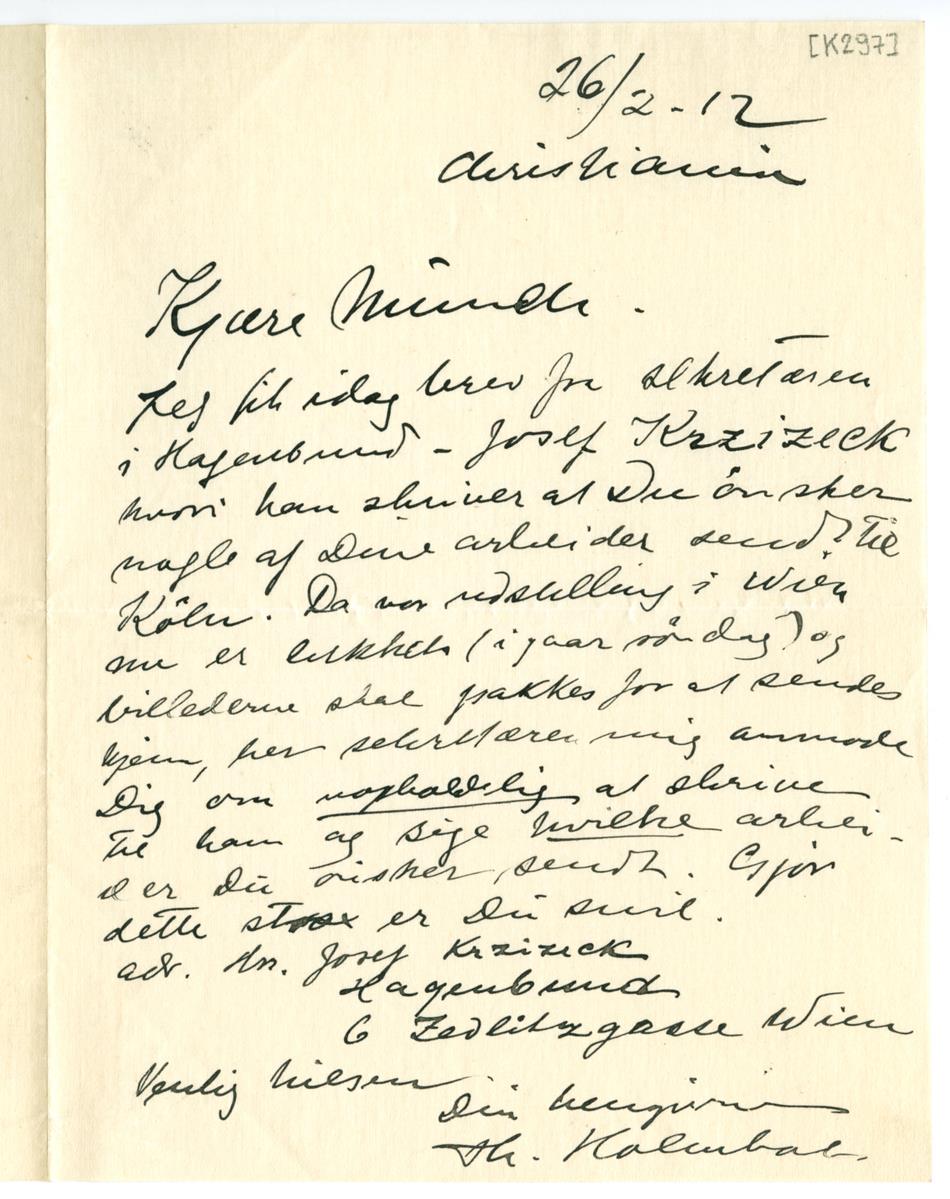 [K297]
26/2-12
Christiania
Kjære Munch.
Jeg fik idag brev fra sekretæren
i Hagenbund - Josef Krzizeck
hvori han skriver at Du önsker
nogle af Dine arbeider sendt til
Köln. Da vor udstilling i Wien
nu er lukket (igaar söndag) og
billederne skal pakkes for at sendes
hjem, ber sekretæren mig anmode
Dig om uopholdelig at skrive
til ham og sige hvilke arbei-
der Du önsker sendt. Gjör
dette er Du snil.
adr. Hr. Josef Krzizeck
Hagenbund
6 Zedlitzgasse Wien
Venlig hilsen
Din hengivne
Th. Holmboe.